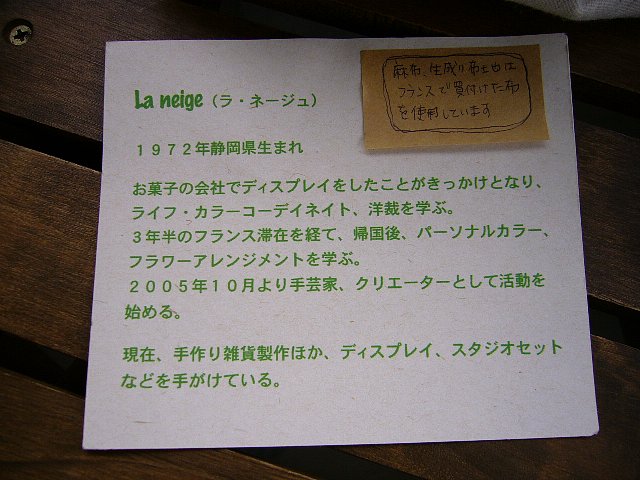 La neige（ラ・ネージュ）
麻布、生成り布 は
フランスで買付けた布
を使用しています
１９７２年静岡県生まれ
お菓子の会社でディスプレイをしたことがきっかけとなり、
ライフ・カラーコーデイネイト、洋裁を学ぶ。
３年半のフランス滞在を経て、帰国後、パーソナルカラー、
フラワーアレンジメントを学ぶ。
２００５年１０月より手芸家、クリエーターとして活動を
始める。
現在、手作り雑貨製作ほか、ディスプレイ、スタジオセット
などを手がけている。